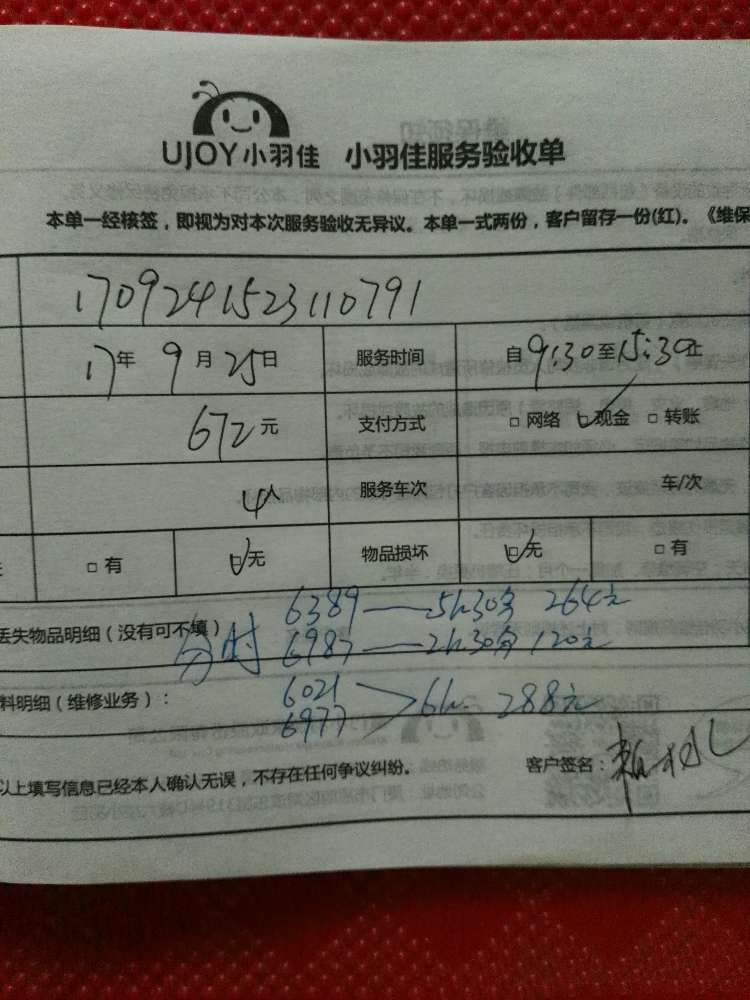 UJOY小羽佳 小羽佳服务验收单
本单一经核签，即视为对本次服务验收无异议。本单一式两份，客户留存一份(红)。《维保
1709241523110791
17年9月25日 服务时间 自9:30至15:30止
672元 支付方式 □网络 ☑现金 □转账
4人 服务车次 车/次
□有 ☑无 物品损坏 ☑无 □有
丢失物品明细（没有可不填） 分时 6389——5h30分 264元
6987——2h30分 120元
料明细（维修业务）： 6021
6977 >6h. 288元
以上填写信息已经本人确认无误，不存在任何争议纠纷。 客户签名：